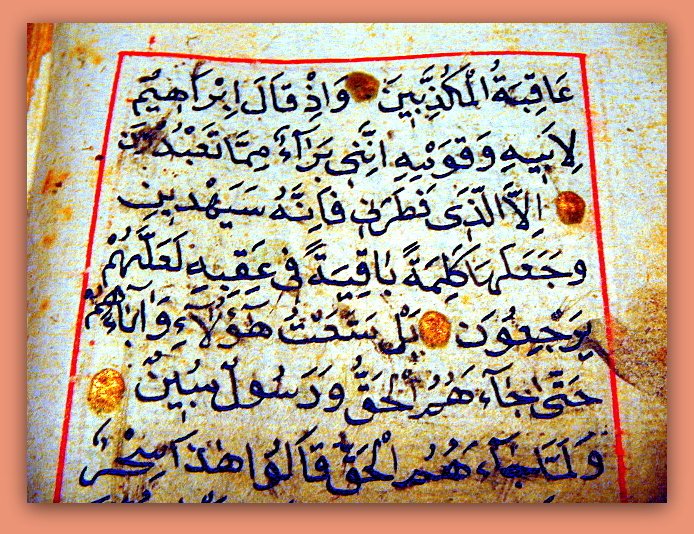 عَاقِبَةُ الْمُكَذِّبِينَ وَاِذْ قَالَ اِبْرَاهِيمُ
لِاَبِيهِ وَقَوْمِهِ اِنَّنِى بَرَاۤءٌ مِمَّا تَعْبُدُونَ
اِلَّا الَّذِى فَطَرَنِى فَاِنَّهُ سَيَهْدِينِ
وَجَعَلَهَا كَلِمَةً بَاقِيَةً فِى عَقِبِهِ لَعَلَّهُمْ
يَرْجِعُونَ بَلْ مَتَّعْتُ هٰۤؤُلَاۤءِ وَاٰبَاۤءَهُمْ
حَتّٰى جَاۤءَهُمُ الْحَقُّ وَرَسُولٌ مُبِينٌ
وَلَمَّا جَاۤءَهُمُ الْحَقُّ قَالُوا هٰذَا سِحْرٌ